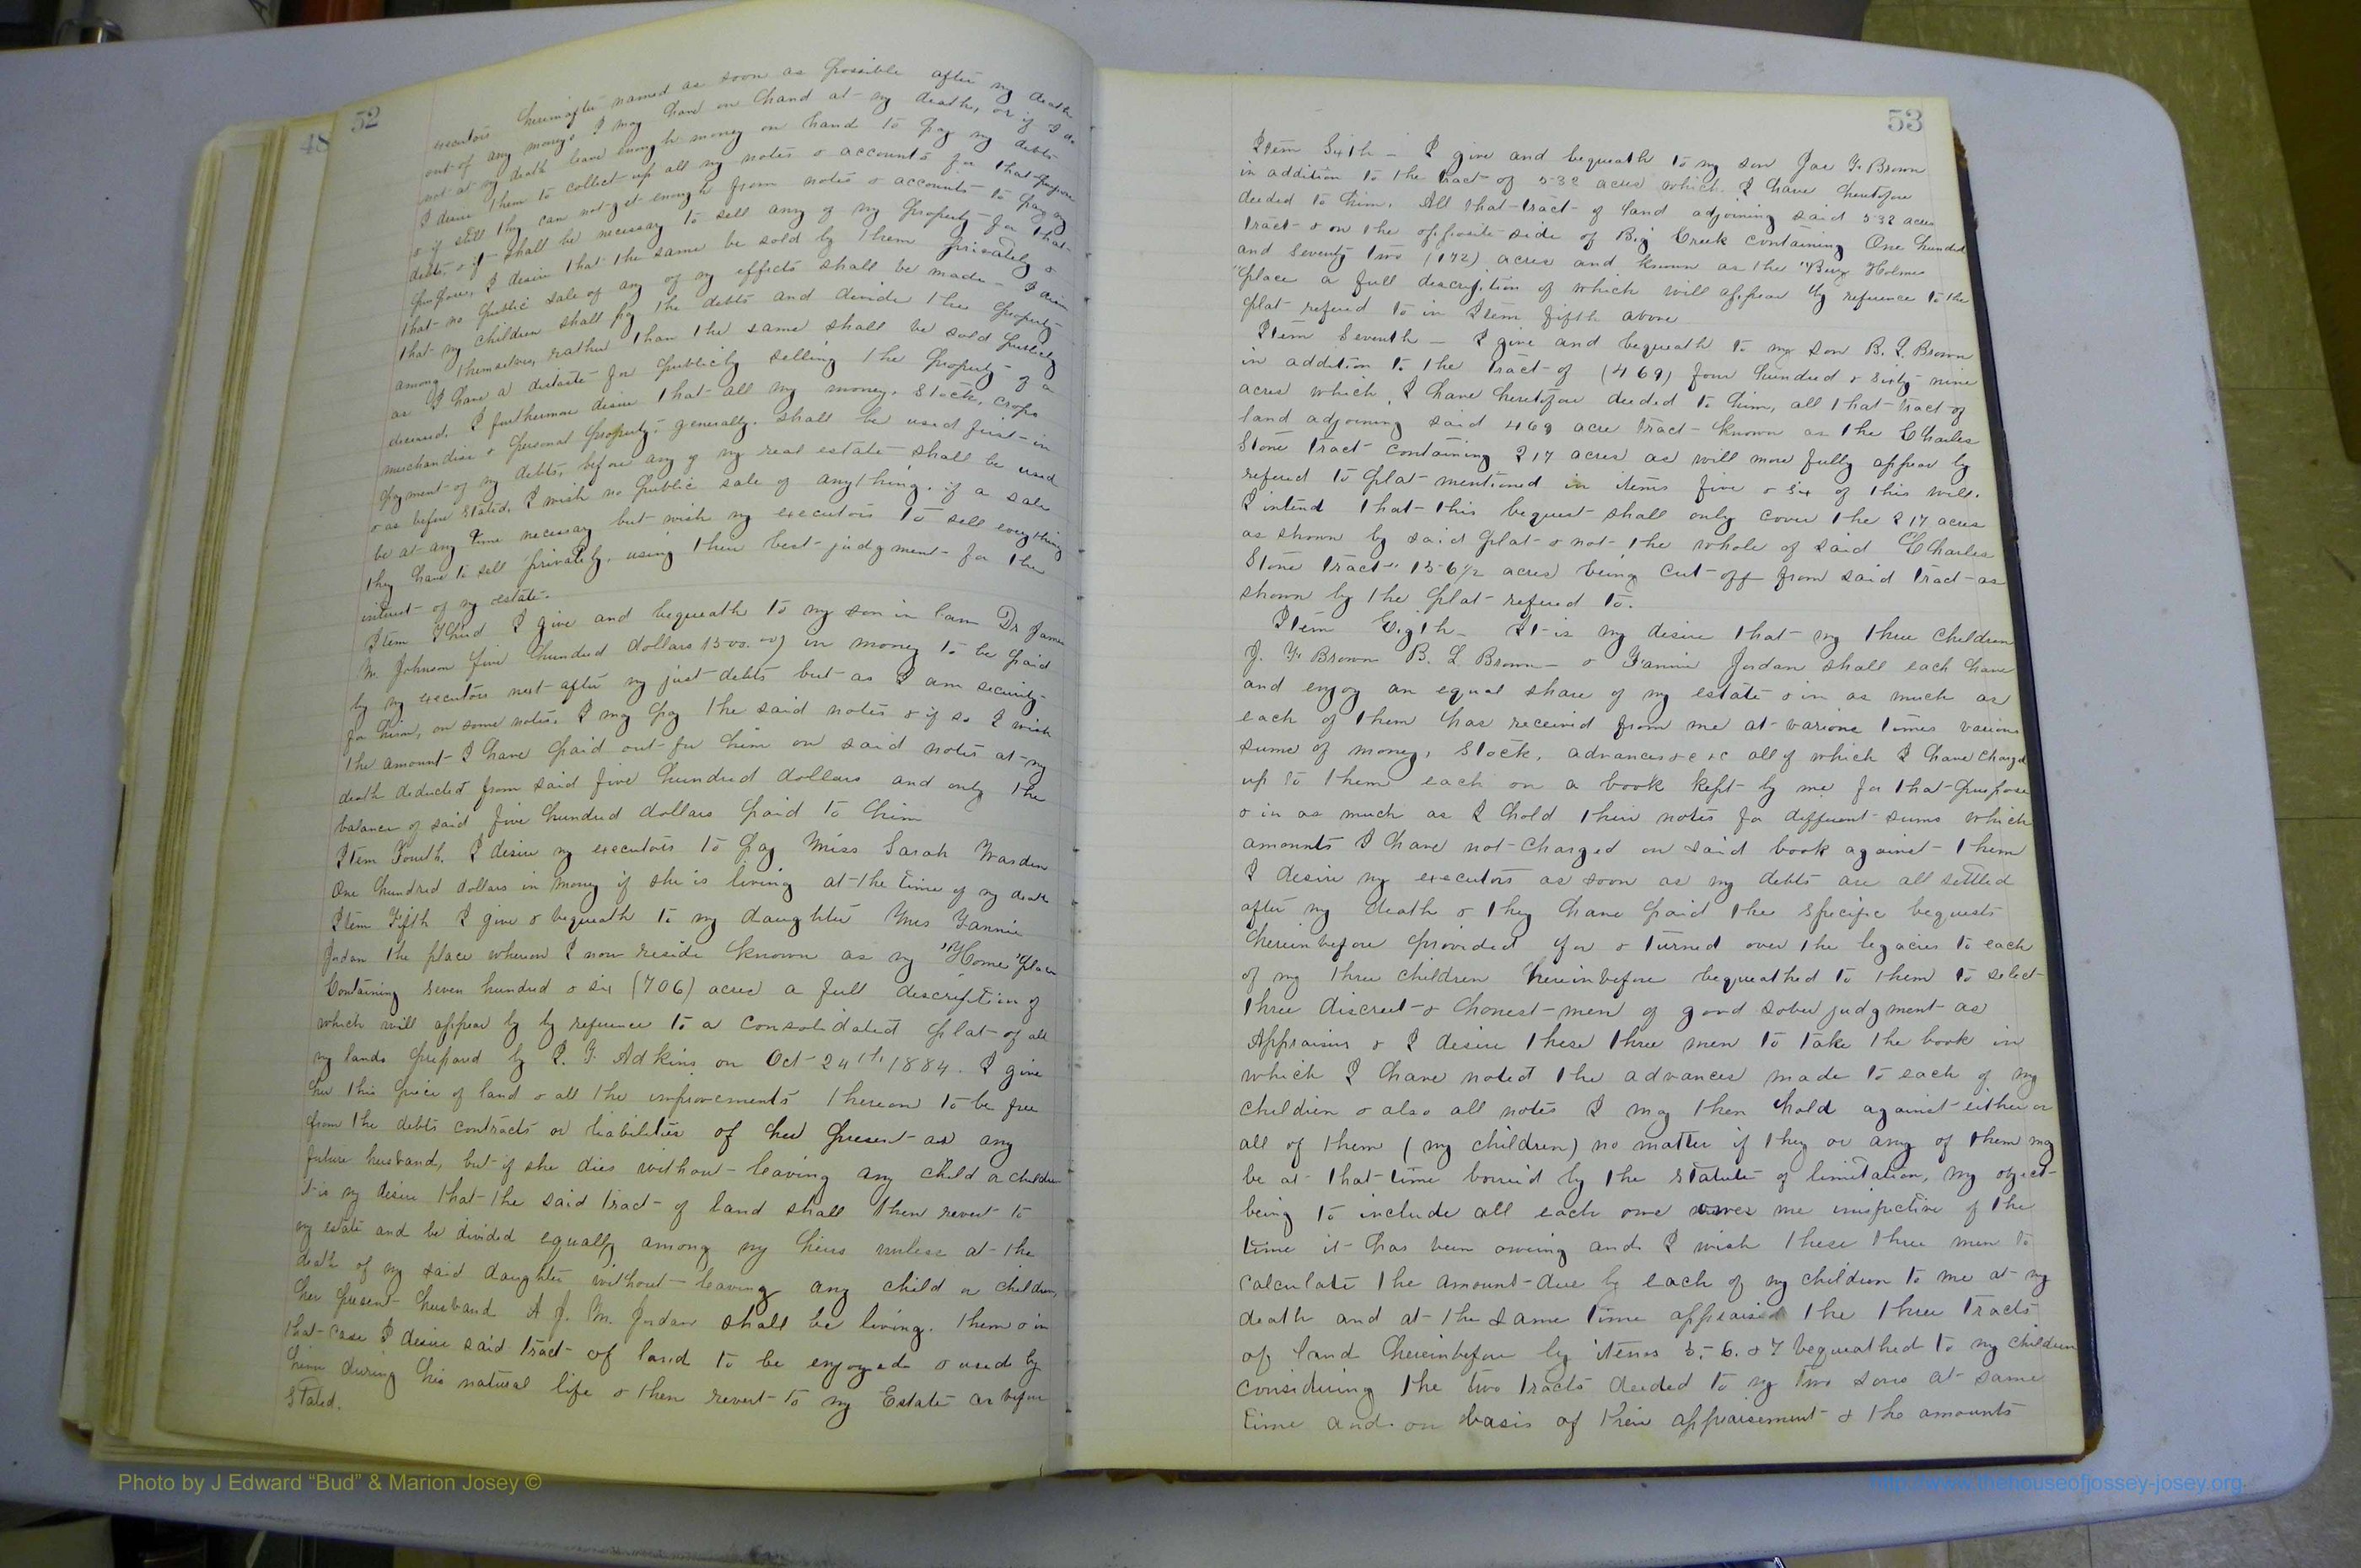 48
52
executors hereinafter named as soon as possible after my death
out of any moneys I may have on hand at my death, or if I do
not at my death leave enough money on hand to pay my debts
I desire them to collect up all my notes & accounts for that purpose
& if still they can not get enough from notes & accounts to pay my
debts & it shall be necessary to sell any of my property for that
purpose, I desire that the same be sold by them privately &
that no public sale of any of my effects shall be made - I desire
that my children shall pay the debts and divide the property
among themselves, rather than the same shall be sold publicly
as I have a distaste for publicly selling the property of a
deceased. I furthermore desire that all my money, Stock, crops
merchandise & personal property, generally, shall be used first in
payment of my debts, before any of my real estate shall be used
& as before stated, I wish no public sale of anything, if a sale
be at any time necessary but wish my executors to sell everything
they have to sell privately, using their best judgment for the
interest of my estate.
Item Third I give and bequeath to my son in law Dr James
M. Johnson five hundred dollars (500.00) in money to be paid
by my executors next after my just debts but as I am security
for him, on some notes, I may pay the said notes & if so I wish
the amount I have paid out for him on said notes at my
death deducted from said five hundred dollars and only the
balance of said five hundred dollars paid to him
Item Fourth. I desire my executors to pay Miss Sarah Warden
One hundred dollars in money if she is living at the time of my death
Item Fifth I give & bequeath to my daughter Mrs Fannie
Jordan the place whereon I now reside known as my "Home" place
Containing seven hundred & six (706) acres a full description of
which will appear by by reference to a consolidated plat of all
my lands prepared by I. F. Adkins on Oct 24th 1884. I give
her this piece of land & all the improvements thereon to be free
from the debts contracts or liabilities of her present or any
future husband, but if she dies without leaving any child or children
it is my desire that the said tract of land shall then revert to
my estate and be divided equally among my heirs unless at the
death of my said daughter without leaving any child or children,
her present husband A J. M. Jordan shall be living. them & in
that case I desire said tract of land to be enjoyed & used by
him during his natural life & then revert to my Estate as before
Stated.
53
Item Sixth - I give and bequeath to my son Jas F. Brown
in addition to the tract of 532 acres which I have heretofore
deeded to him. All that tract of land adjoining said 532 acres
tract & on the opposite side of Big Creek containing One hundred
and seventy two (172) acres and known as the "Benj Holmes
"place a full description of which will appear by reference to the
plat refered to in Item fifth above
Item Seventh - I give and bequeath to my son B. L. Brown
in addition to the tract of (469) four hundred & sixty nine
acres which, I have heretofore deeded to him, all that tract of
land adjoining said 469 acre tract known as the Charles
Stone tract containing 217 acres as will more fully appear by
refered to plat mentioned in items five & six of this will.
I intend that this bequest shall only cover the 217 acres
as shown by said plat & not the whole of said "Charles
Stone tract" 156½ acres being cut off from said tract as
shown by the plat refered to.
Item Eigth - It is my desire that my three children
J. F. Brown B. L. Brown - & Fannie Jordan shall each have
and enjoy an equal share of my estate & in as much as
each of them has received from me at various times various
sums of money, Stock, advances &c &c all of which I have charged
up to them each on a book kept by me for that purpose
& in as much as I hold their notes for different sums which
amounts I have not charged on said book against them
I desire my executors as soon as my debts are all settled
after my death & they have paid the specific bequests
hereinbefore provided for & turned over the legacies to each
of my three children hereinbefore bequeathed to them to select
three discreet & honest men of good sober judgment as
Appraisers & I desire these three men to take the book in
which I have noted the advances made to each of my
children & also all notes I may then hold against either or
all of them (my children) no matter if they or any of them may
be at that time barred by the statute of limitation, my object
being to include all each one owes me irrespective of the
time it has been owing and I wish these three men to
calculate the amount due by each of my children to me at my
death and at the same time appraise the three tracts
of land hereinbefore by items 5. 6. & 7 bequeathed to my children
considering the two tracts deeded to my two sons at same
time and on basis of their appraisement & the amounts
Photo by J Edward “Bud” & Marion Josey ©
http://www.thehouseofjossey-josey.org